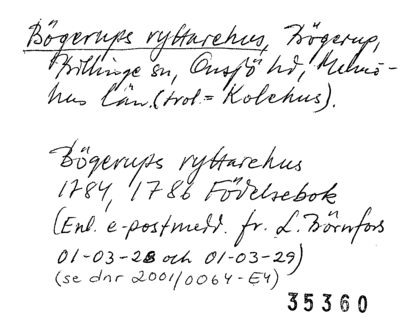 Bögerups ryttarehus, Bögerup,
Billinge sn, Onsjö hd, Malmö-
hus län. (trol. = Kolehus).
Bögerups ryttarehus
1784, 1786 Födelsebok
(Enl. e-postmedd. fr. L. Börnfors
01-03-28 och 01-03-29)
(se dnr 2001/0064-E4)
35360